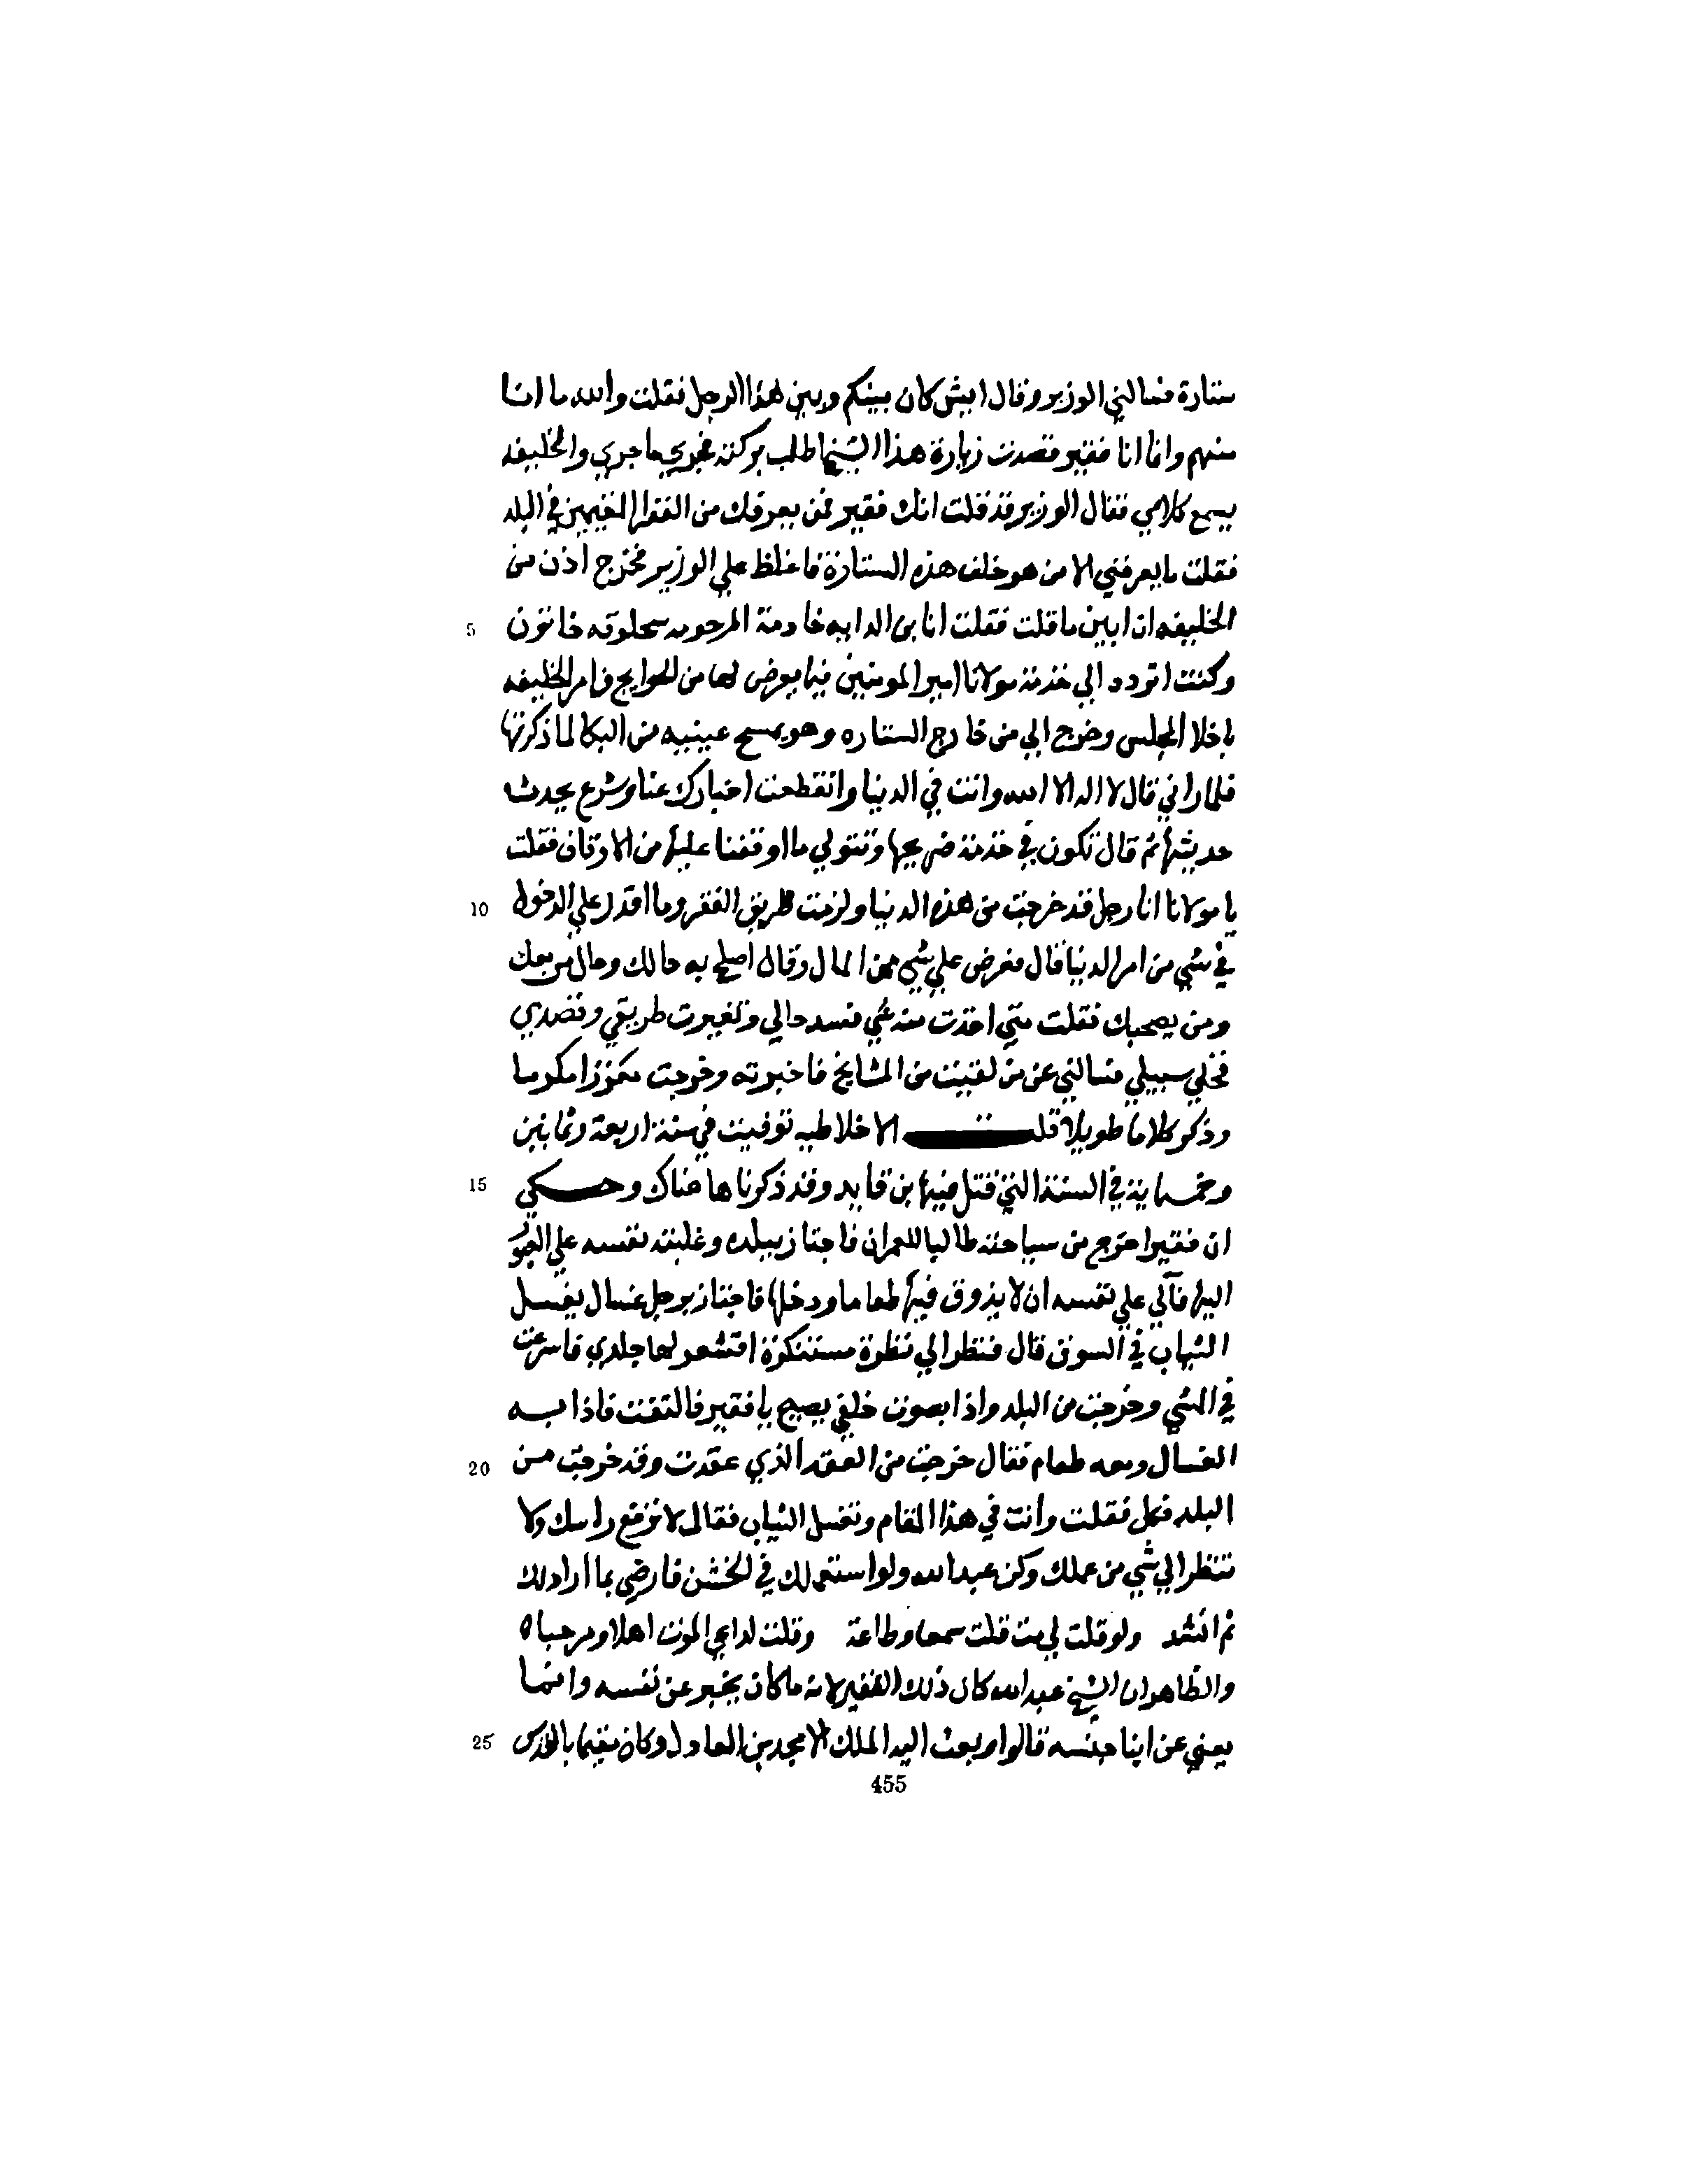 ستارة فسالني الوزير وقال ايش كان بينكم وبين هذا الرجل فقلت والله ما انا
منهم وانما انا فقير قصدت زيارة هذا الشيخ اطلب بركته فجري ما جري والخليفه
يسمع كلامي فقال الوزير قد قلت انك فقير فمن يعرفك من الفقرا المقيمين في البلد
فقلت ما يعرفني الا من هو خلف هذه الستارة فاغلظ علي الوزير فخرج اذن من
5 الخليفه ان ابين ما قلت فقلت انا ابن الدايه خادمة المرحومه سلجوقه خاتون
وكنت اتردد الي خدمة مولانا امير المومنين فيما يعرض لها من الحوايج فامر الخليفه
باخلا المجلس وخرج الي من خارج الستاره وهو يمسح عينيه من البكا لما ذكرتها
فلما راني قال لا اله الا الله وانت في الدنيا وانقطعت اخبارك عنا وشرع يحدث
حديثها ثم قال تكون في خدمة ضريحها وتتولي ما اوقفنا عليها من الاوقاف فقلت
10 يا مولانا انا رجل قد خرجت من هذه الدنيا ولزمت طريق الفقر وما اقدر علي الدخول
في شي من امر الدنيا قال فعرض علي شي من المال وقال اصلح به حالك وحال من معك
ومن يصحبك فقلت متي اخذت منه شي فسد حالي وتغيرت طريقي وقصدي
فخلي سبيلي فسالني عن من لقيت من المشايخ فاخبرته وخرجت معززا مكرما
وذكر كلاما طويلا قلت الاخلاطيه توفيت في سنة اربعة وثمانين
15 وخمسماية في السنة التي قتل فيها بن قايد وقد ذكرناها هناك وحكي
ان فقيرا خرج من سياحته طالبا للعمران فاجتاز ببلده وغلبته نفسه علي العبور
اليها فآلي علي نفسه ان لا يذوق فيها طعاما ودخلها فاجتاز برجل غسال يغسل
الثياب في السوق قال فنظر الي نظرة مستنكرة اقشعر لها جلدي فاسرعت
في المشي وخرجت من البلد واذا بصوت خلفي يصيح يا فقير فالتفت فاذا به
20 الغسال ومعه طعام فقال خرجت من العقد الذي عقدت وقد خرجت من
البلد فكل فقلت وانت في هذا المقام وتغسل الثياب فقال لا ترفع راسك ولا
تنظر الي شي من عملك وكن عبد الله ولو استعملك في الخشن فارضي بما اراد لك
ثم انشد ولو قلت لي مت قلت سمعا وطاعة وقلت لداعي الموت اهلا ومرحبا ه
والظاهر ان الشيخ عبد الله كان ذلك الفقير لانه ما كان يخبر عن نفسه وانما
25 يعني عن ابنا جنسه قالوا وبعث اليه الملك الامجد بن العادل وكان مقيما بالقدس
455